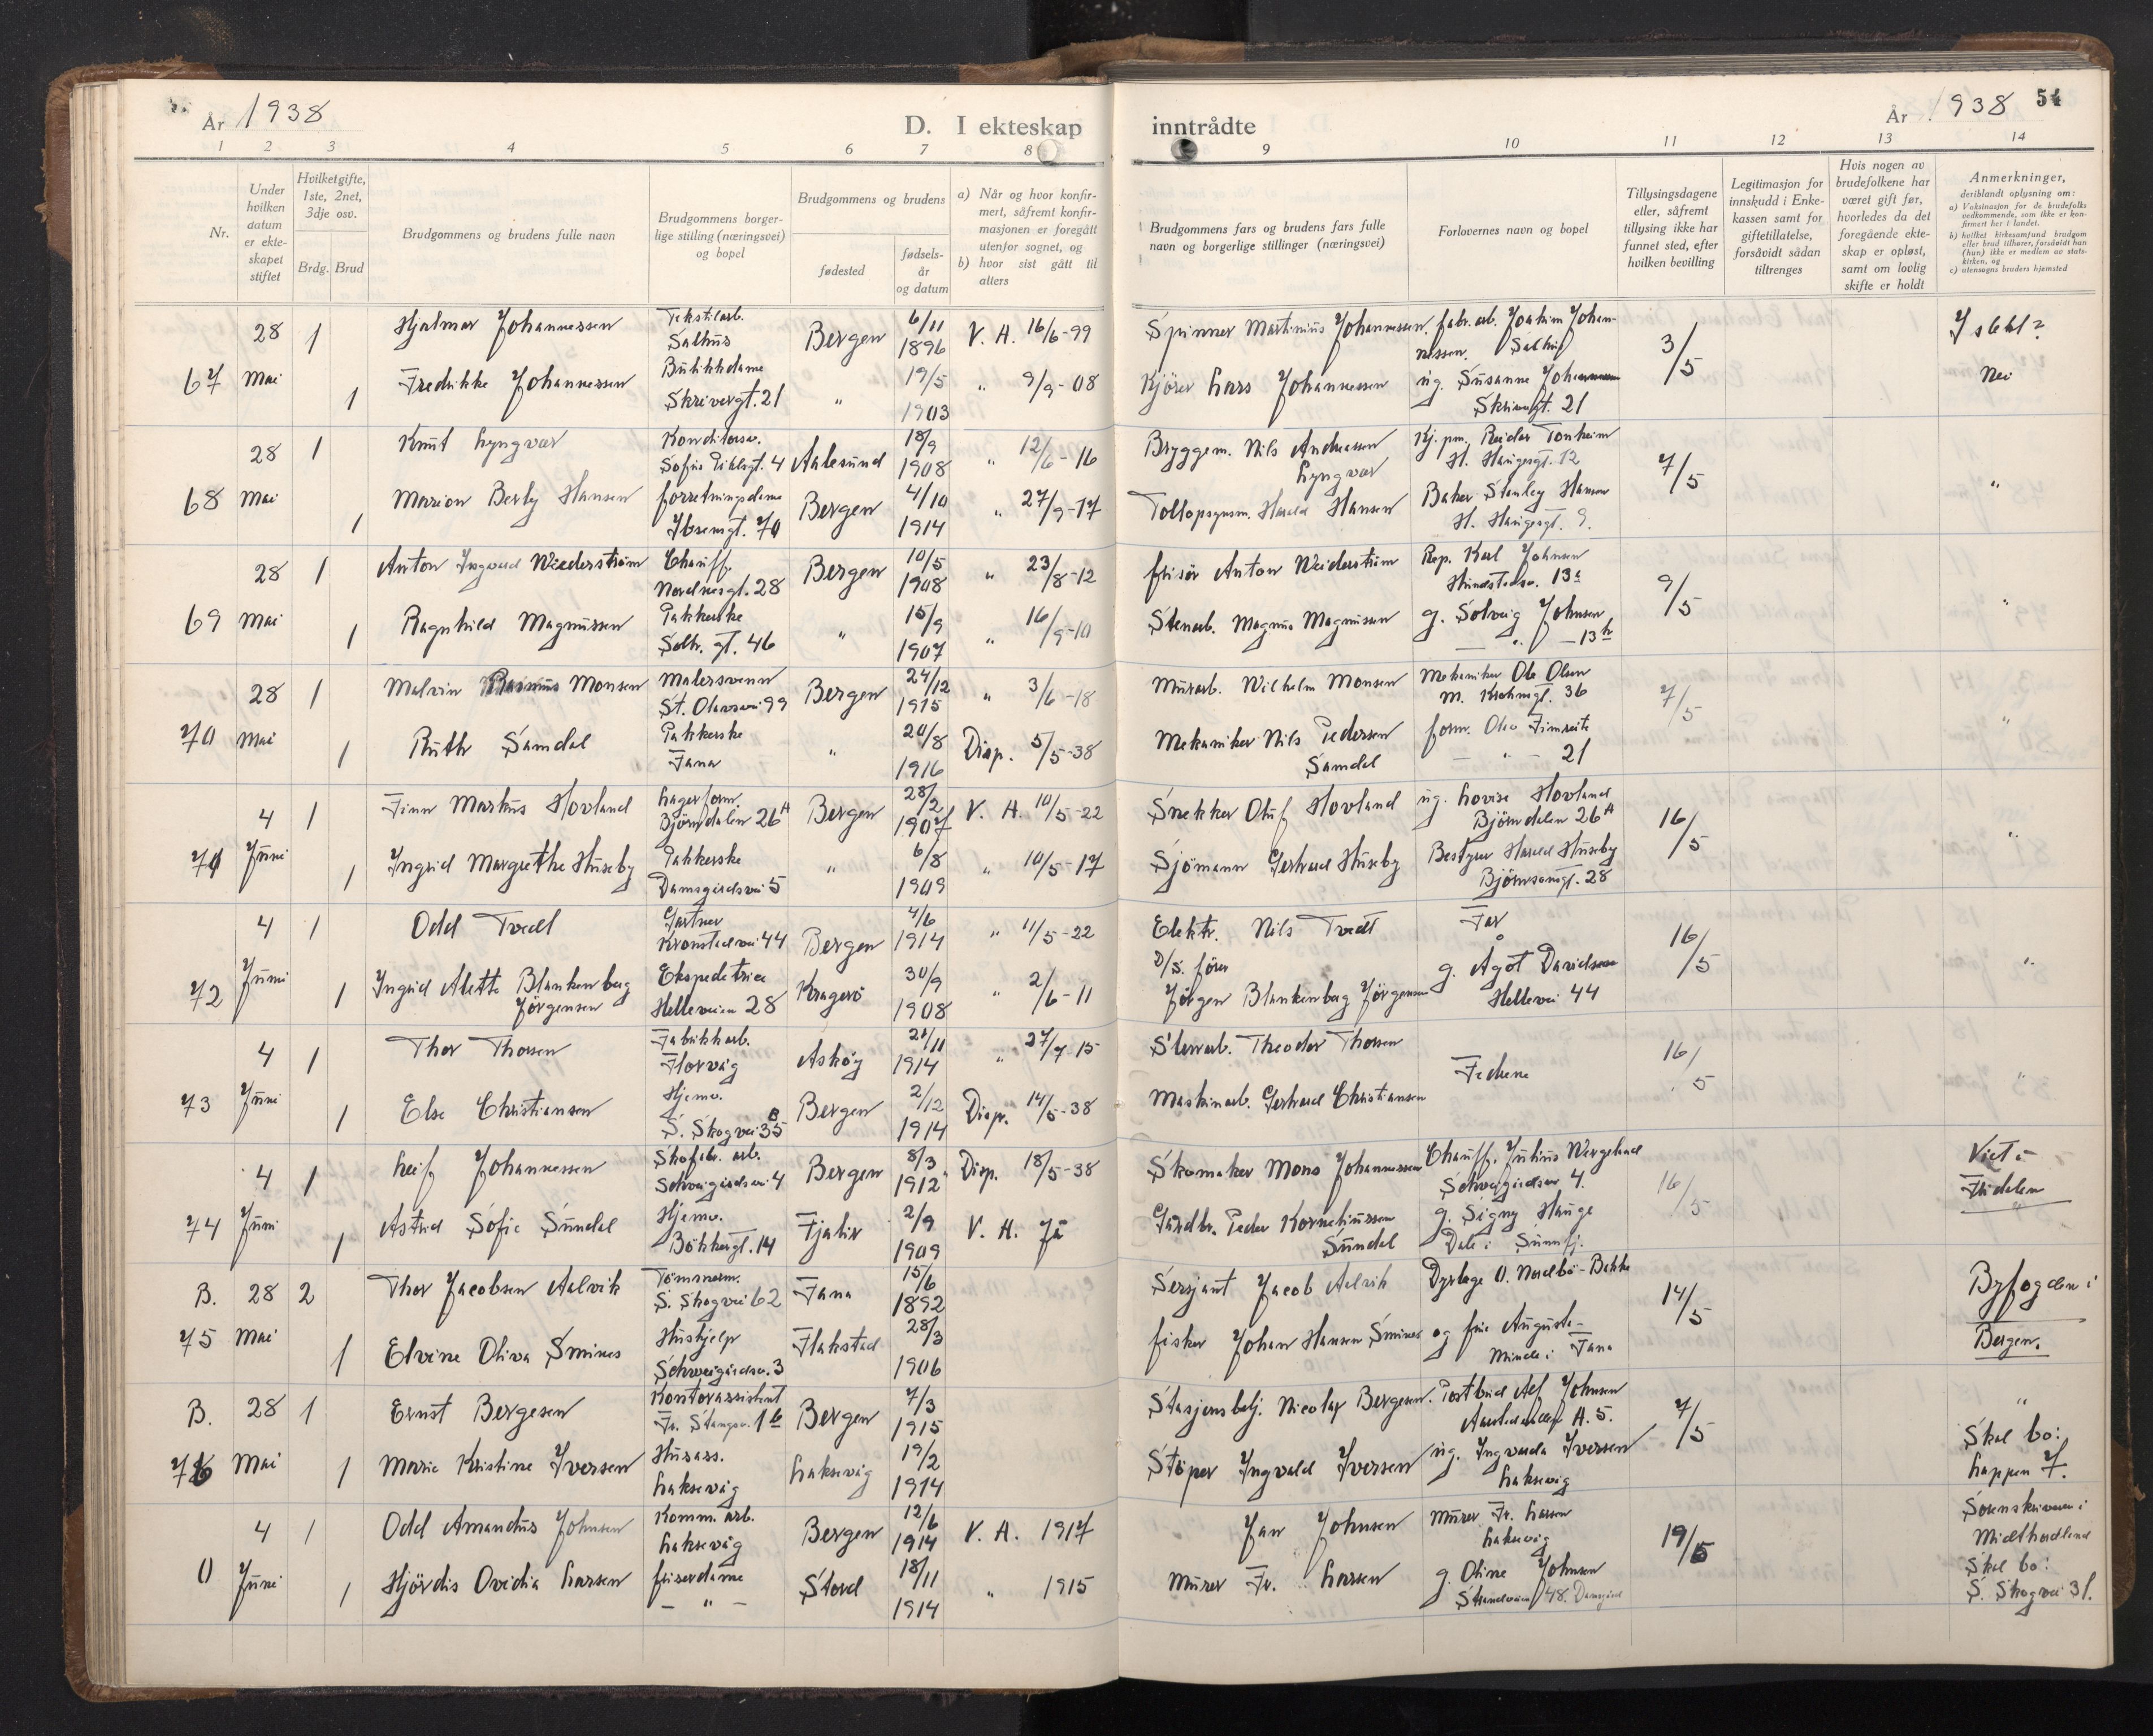 År 1938
D. I ekteskap inntrådte
År 1938 54
1 2 3 4 5 6 7 8 9 10 11 12 13 14
Nr.
Under hvilken datum er ekteskapet stiftet
Hvilketgifte, 1ste, 2net, 3dje osv.
Brdg. Brud
Brudgommens og brudens fulle navn
Brudgommens borgerlige stilling (næringsvei) og bopel
Brudgommens og brudens
fødested
fødselsår og datum
a) Når og hvor konfirmert, såfremt konfirmasjonen er foregått utenfor sognet, og
b) hvor sist gått til alters
Brudgommens fars og brudens fars fulle navn og borgerlige stillinger (næringsvei)
Forlovernes navn og bopel
Tillysingsdagene eller, såfremt tillysing ikke har funnet sted, efter hvilken bevilling
Legitimasjon for innskudd i Enkekassen samt for giftetillatelse, forsåvidt sådan tiltrenges
Hvis nogen av brudefolkene har været gift før, hvorledes da det foregående ekteskap er opløst, samt om lovlig skifte er holdt
Anmerkninger,
deriblandt oplysning om:
a) Vaksinasjon for de brudefolks vedkommende, som ikke er konfirmert her i landet.
b) hvilket kirkesamfund brudgom eller brud tilhører, forsåvidt han (hun) ikke er medlem av statskirken, og
c) utensogns bruders hjemsted
28 1 Hjalmar Johannessen Tekstilarb. Salhus Bergen 6/11 1896 V. A. 16/6-99 Spinner Martinius Johannessen. fabr. arb. Joakim Johannessen. Salhus 3/5 I slekt?
67 Mai 1 Fredrikke Johannessen Butikkdame Skrivergt. 21 " 19/5 1903 " 9/9-08 Kjører Lars Johannessen ug. Susanne Johannessen Skrivergt. 21 Nei
28 1 Knut Lyngvær Konditorsv. Sofus Pihlsgt. 4 Aalesund 18/9 1908 " 12/6-16 Bryggem. Nils Andreassen Lyngvær Kj. pm. Reidar Tonheim H. Haugesgt. 12 7/5 "
68 Mai 1 Marion Berly Hansen forretningsdame Ibsensgt. 70 Bergen 4/10 1914 " 27/9-17 Tollopsynsm. Harald Hansen Baker Stanley Hansen H. Haugesgt. 9.
28 1 Anton Ingvald Weiderstrøm Chauff. Nordnesgt. 28 Bergen 10/5 1908 " 23/8-12 frisør Anton Weiderstrøm Rep. Karl Johnsen 9/5 "
69 Mai 1 Ragnhild Magnussen Pakkerske Solh. gt. 46 " 15/9 1907 " 16/9-10 Stenarb. Magnus Magnussen g. Solveig Johnsen
28 1 Malvin Rasmus Monsen malersvenn St. Olavsvei 99 Bergen 24/12 1915 " 3/6-18 Murarb. Wilhelm Monsen Mekaniker Ole Olsen M. Krohnsgt. 36 7/5 "
70 Mai 1 Ruth Samdal Pakkerske Fana " 20/8 1916 Disp. 5/5-38 Mekaniker Nils Pedersen Samdal form. Olav Fimreite - " - 21
4 1 Finn Markus Hovland Lagerform. Bjørndalen 26A Bergen 28/2 1907 V. A. 10/5-22 Snekker Oluf Hovland ug. Lovise Hovland Bjørndalen 26A 16/5 "
71 Juni 1 Ingrid Margrethe Huseby Pakkerske Damsgårdsvei 5 " 6/8 1909 " 10/5-17 Sjømann Gerhard Huseby Bestyrer Harald Huseby Bjørnsonsgt. 28
4 1 Odd Tvedt Gartner Kronstadvei 44 Bergen 4/6 1914 " 11/5-22 Elektr. Nils Tvedt Far 16/5 "
72 Juni 1 Ingrid Alette Blankenberg Jørgensen Ekspeditrice Helleveien 28 Kragerø 30/9 1908 " 2/6-11 D/S. fører Jørgen Blankenberg Jørgensen g. Ågot Davidsen Hellevei 44
4 1 Thor Thorsen Fabrikkarb. Florvåg Askøy 21/11 1914 " 27/7-15 Theodor Thorsen Fedrene 16/5 "
73 Juni 1 Else Christiansen Hjemv. S. Skogvei 35B Bergen 2/12 1914 Disp. 14/5-38 Maskinarb. Gerhard Christiansen
4 1 Leif Johannessen Skofabr. arb. Schweigårdsvei 4 Bergen 8/3 1912 Disp. 18/5-38 Skomaker Mons Johannessen Chauff. Julius Wergeland Schweigårdsv 4. 16/5 Viet i Fridalen
74 Juni 1 Astrid Sofie Sundal Hjemv. Bøkkergt. 14 Fjaler 2/9 1909 V. A. Ja Gårdbr. Peder Korneliussen Sundal g. Signy Hauge Dale i Sunnfj. "
B. 28 2 Thor Jacobsen Aalvik Tømmerm. S. Skogvei 62 Fana 15/6 1892 Sersjant Jacob Aalvik Dyrlæge O. Nordbø-Bakke 14/5 Byfogden i Bergen.
75 Mai 1 Elvine Oliva Smines Hushjelp Schweigårdsv. 3 Flakstad 28/3 1906 fisker Johan Hansen Smines og frue Augusta - Minde i Fana
B. 28 1 Ernst Bergesen Kontorassistent Fr. Stangsv. 16 Bergen 7/3 1915 Stasjonsbetj. Nicolay Bergesen. Postbud Alf Johnsen A. 5. 7/5 "
76 Mai 1 Marie Kristine Iversen Husass. Laksevåg Laksevåg 19/2 1914 Støper Ingvald Iversen ug. Ingvarda Iversen Laksevåg Skal bo: Lappen 7.
4 1 Odd Amandus Johnsen Komm. arb. Laksevåg Bergen 12/6 1914 V. A. 1917 Jan Johnsen Murer Fr. Larsen Laksevåg 19/5 Sorenskriveren i Midthordland
0 Juni 1 Hjørdis Ovidia Larsen friserdame - " - Stord 18/11 1914 " 1915 Murer Fr. Larsen g. Oline Johnsen Strandveien 48. Damsgård Skal bo: S. Skogvei 31.